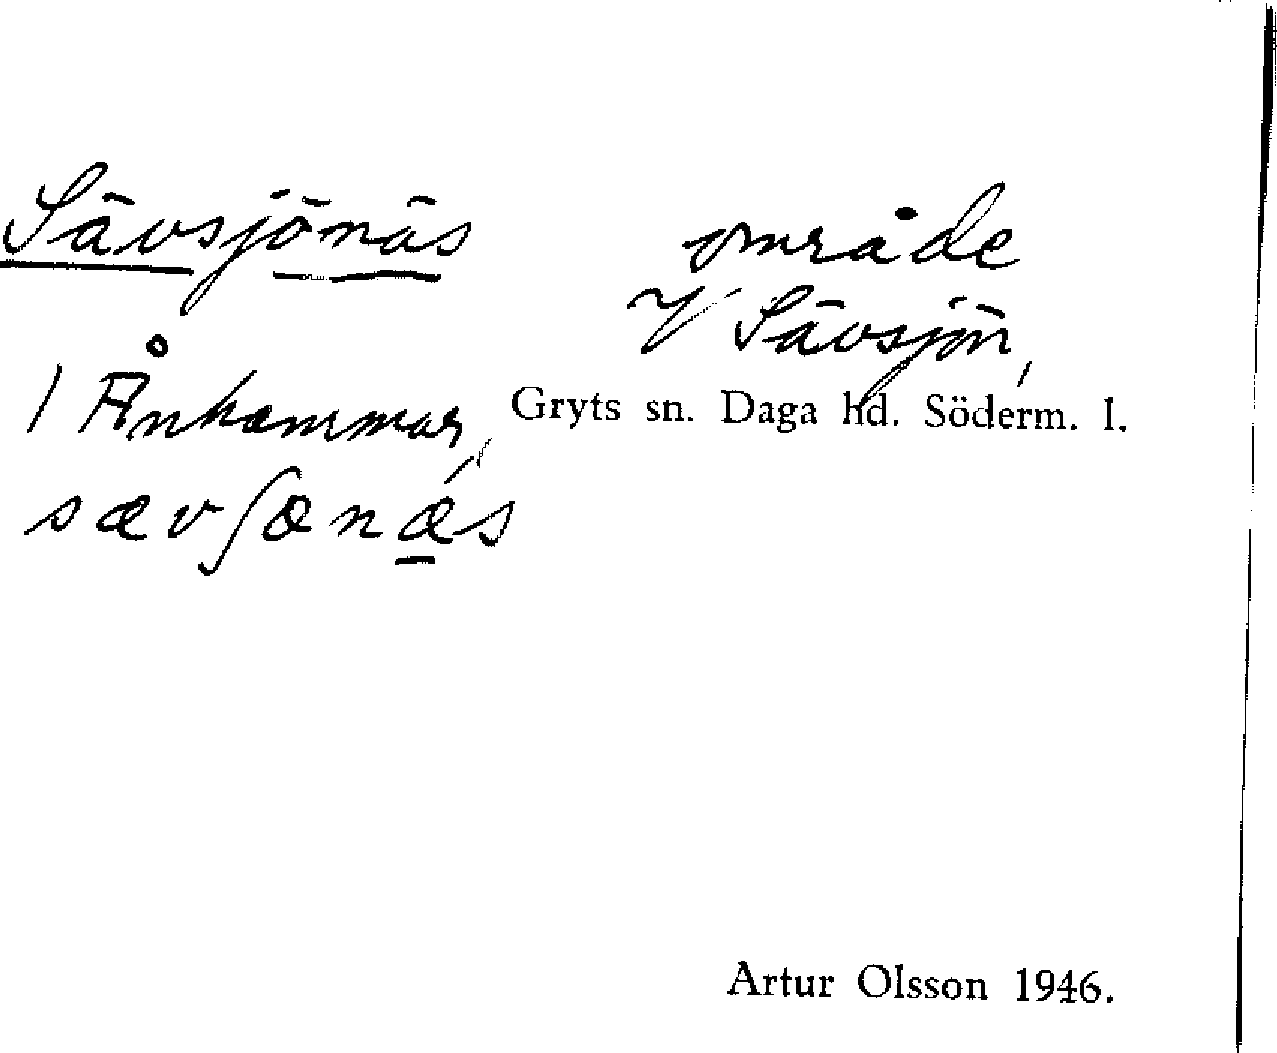 Sävsjönäs område
V Sävsjön,
1 Ånhammar, Gryts sn. Daga hd. Söderm. l.
sævʃœnæs
Artur Olsson 1946.